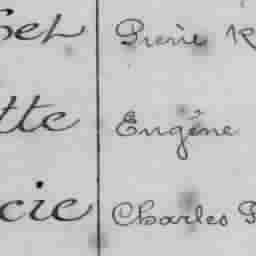 sel Pierre R
tte Eugène
cie Charles P